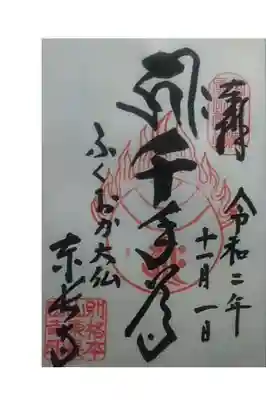 奉拝
令和二年
十一月一日
千手尊
ふくおか大仏
東長寺